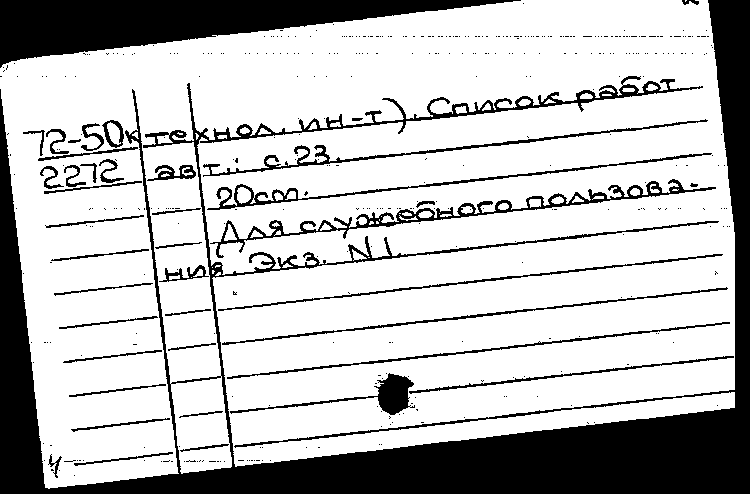 72-50к технол. ин-т). Список работ
2272 авт.: с.23.
20см.
Для служебного пользова-
ния. Экз. N1.
4